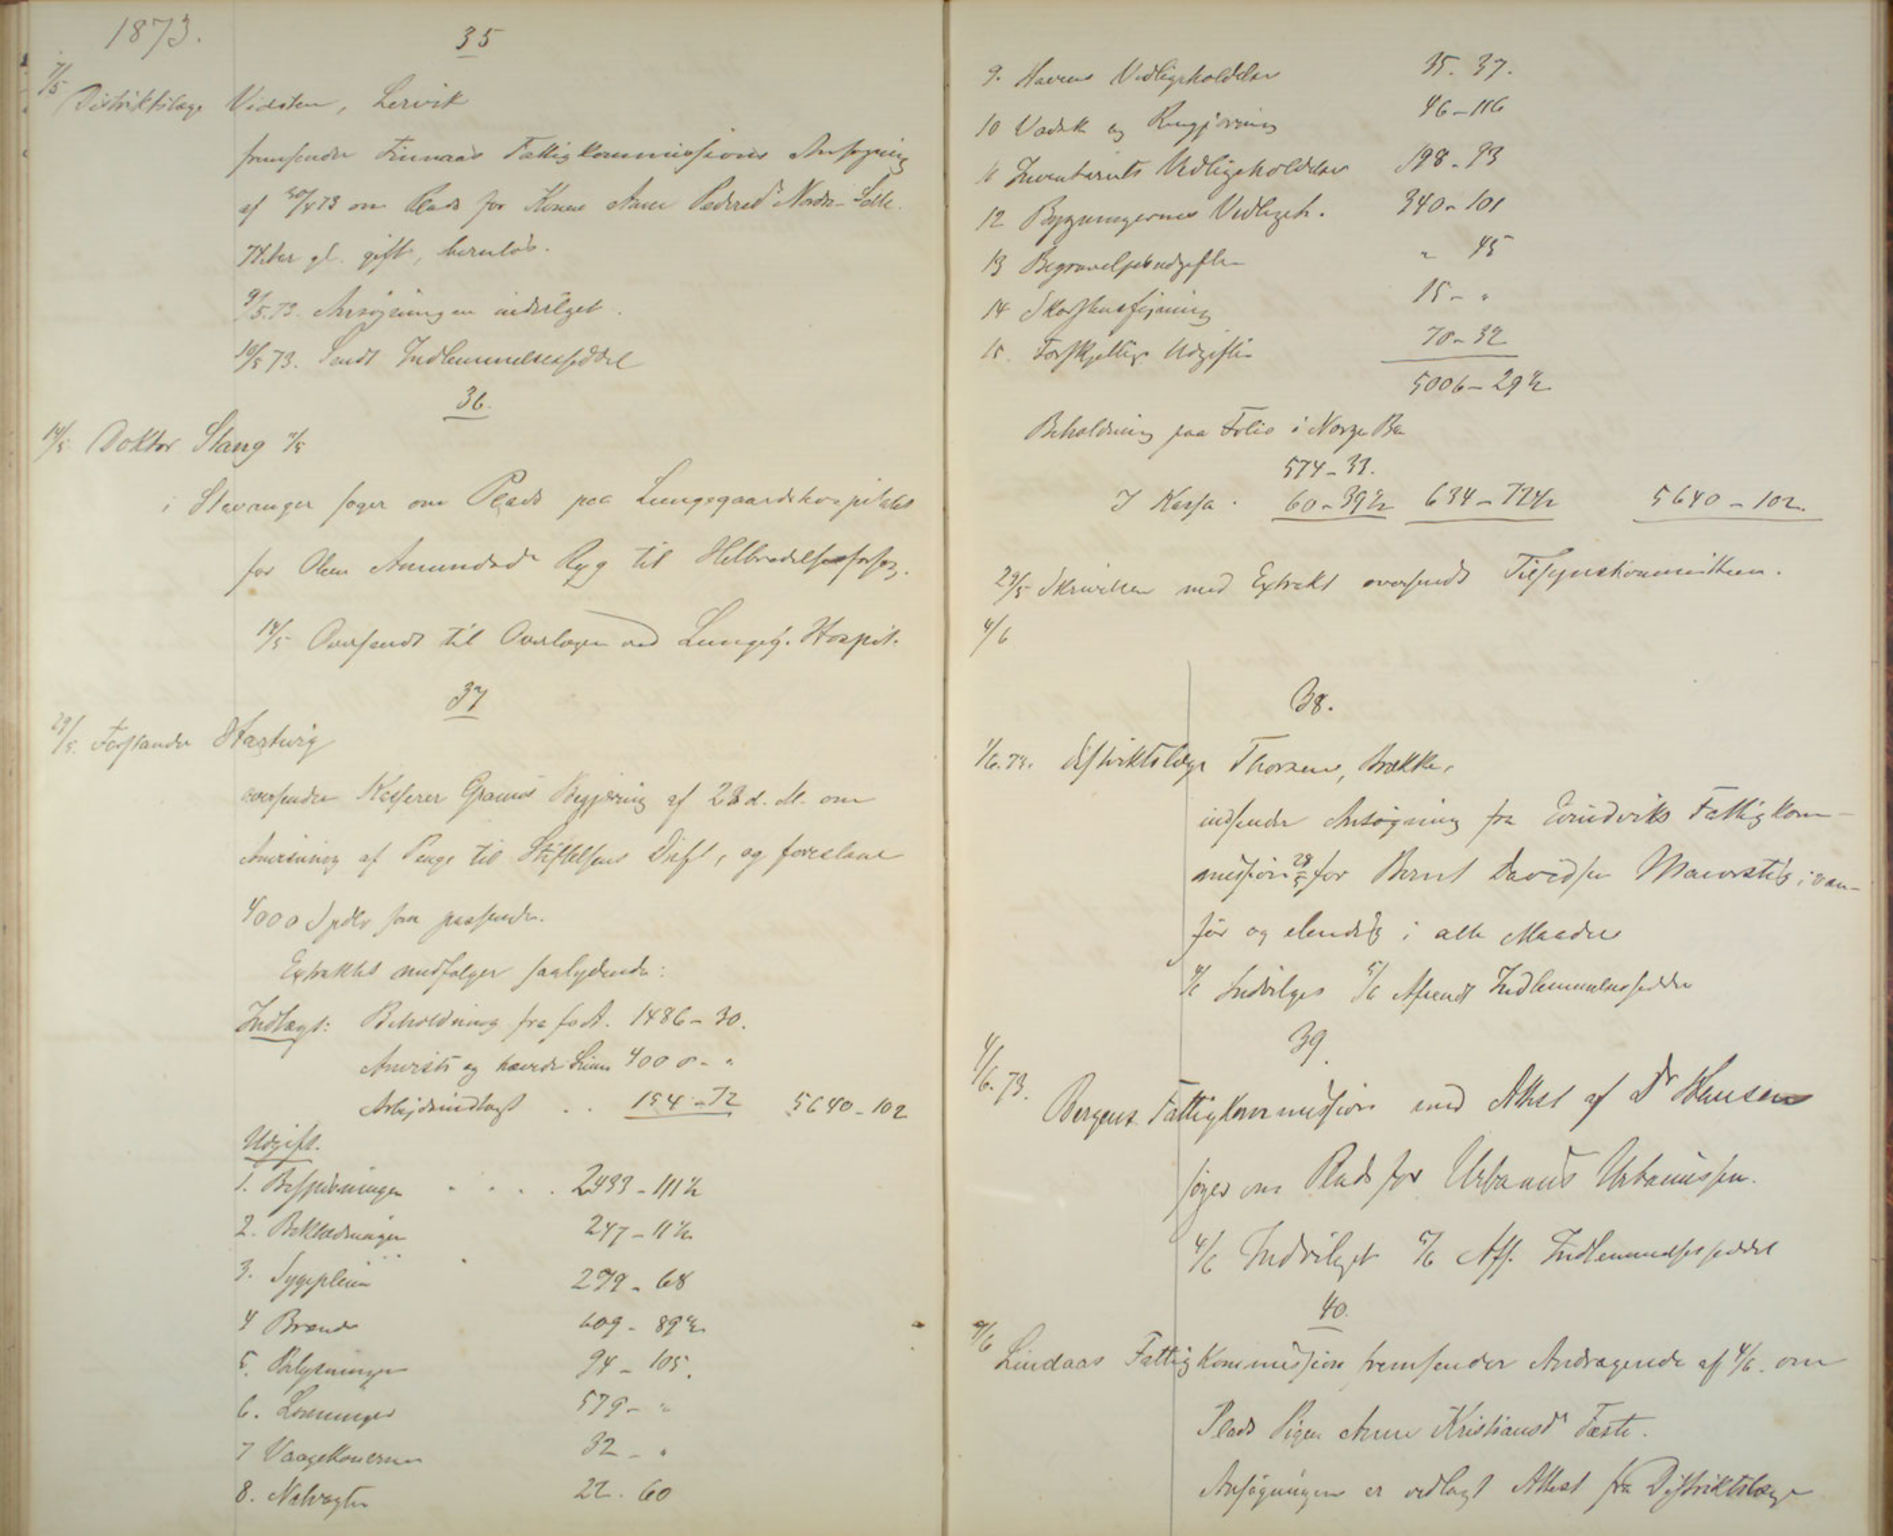 1873.
35
7/5 Distriktslæge Vidsten, Lervik
fremsender Finnaas Fattigkommissions Ansøgning
af 30/4 73 om Plads for Konen Anne Pedersd. Nordre-Selle.
74 Aar gl. gift, barnløs.
9/5.73. Ansøgningen indvilget.
10/5 73. Sendt Indlemmelsesseddel
36.
14/5 Doktor Stang
i Stavanger søger om Plads paa Lungegaardshospitalet
for Olene Amundsd. Ryg til Helbredelsesforsøg.
14/5 Oversendt til Overlægen ved Lungeg. Hospit.
37
29/5. Forstander Hartwig
oversender Kasserer Grams Begjæring af 28 d. M. om
Anvisning af Penge til Stiftelsens Drift, og foreslaar
4000 Spdlr som passende.
Extraktet medfølger saalydende:
Indtægt: Beholdning fra f. A. 1486 - 30.
Anvist og hævede Summer 4000 - "
Arbeidsindtægt . . 154 - 72 5640 - 102
Udgift.
1. Bespisningen . . . . 2433 - 111½
2. Beklædningen 247 - 11½
3. Sygepleien 279 - 68
4 Brænde 609 - 89½
5. Belysningen 94 - 105.
6. Lønninger 579 - "
7 Vaagekonerne 32 - "
8. Natvægter 22. 60
9. Havens Vedligeholdelse 35. 37.
10 Vadsk og Rengjøring 46 - 116
11 Inventariets Vedligeholdelse 198 - 93
12 Bygningernes Vedligeh. 340 - 101
13 Begravelsesudgifter " 45
14 Skorstensfeining 15 - "
15. Forskjellige Udgifter 70 - 32
5006 - 29½
Beholdning paa Folio i Norges Ba
574 - 33.
I Kassa . 60 - 39½ 634 - 72½ 5640 - 102.
29/5 Skrivelsen med Extrakt oversendt Tilsynskommitteen.
4/6
38.
1/6.73. Distriktslæge Thorsen, Brække,
indsender Ansøgning fra Evindviks Fattigkom-
mission 28/5 for Bernt Davidsen ; van-
før og elendig i alle Maader
4/6 Indvilges 5/6 Afsendt Indlemmelsesseddel
39.
4/6.73. Bergens Fattigkommission med Attest af Dr Hansen
søger om Plads for Urbanus Urbanussen.
4/6 Indvilget 5/6 Afs. Indlemmelsesseddel
40.
9/6 Lindaas Fattigkommission fremsender Andragende af 4/6. om
Plads Pigen Anne Kristiansdr Fæste.
Ansøgningen er vedlagt Attest fra Distriktslæge